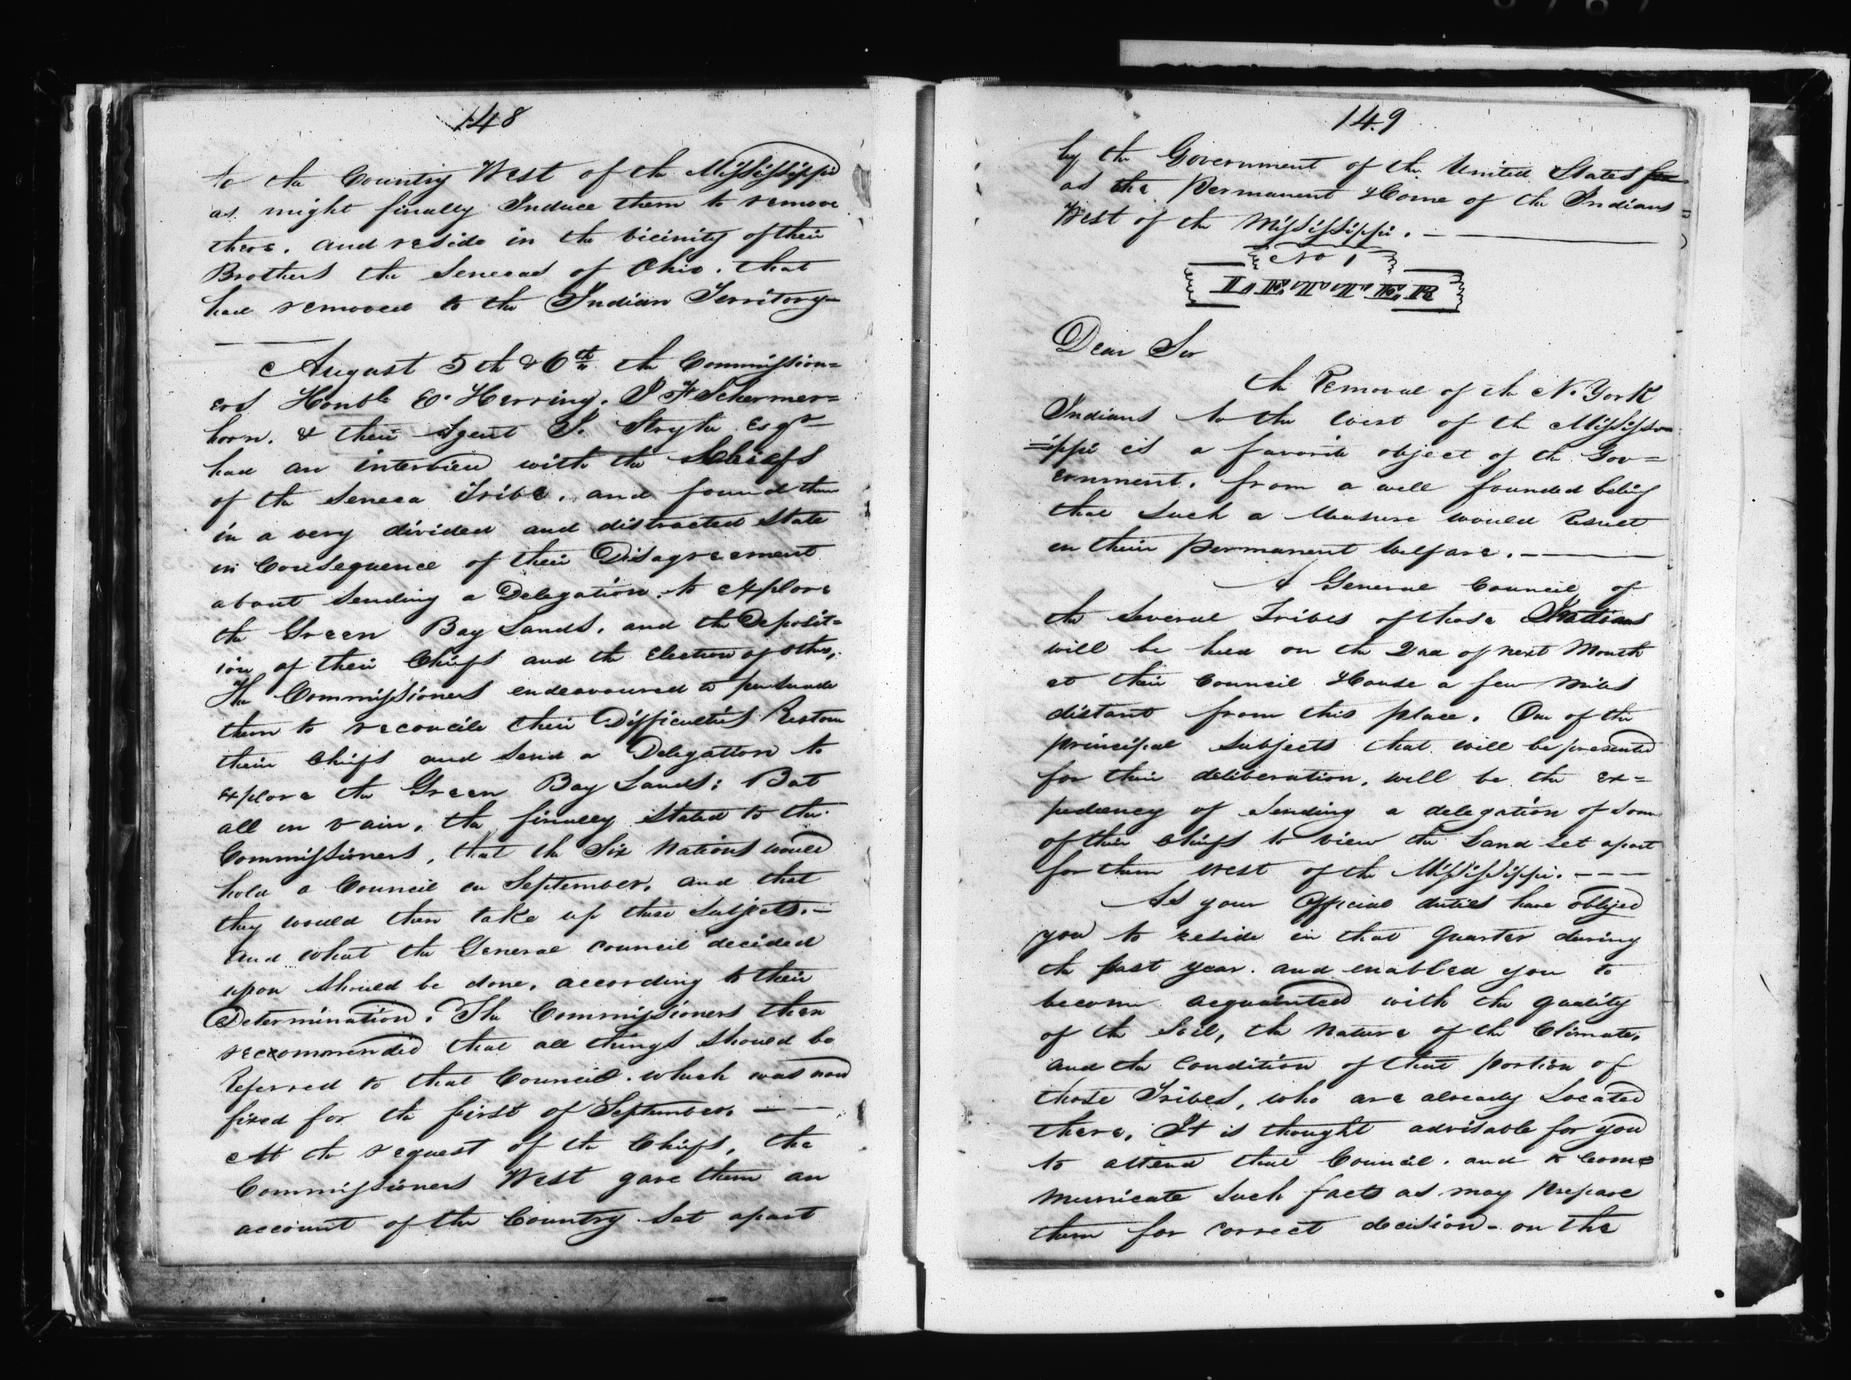 148
to the Country West of the Mississippi
as might finally Induce them to remove
there. and reside in the vicinity of their
Brothers the Senecas of Ohio. that
had removed to the Indian Territory—
August 5th & 6th the Commission=
ers Honble E. Herring. J F Schermer=
horn. & their Agent J. Stryker Esqr
had an interview with the Chiefs
of the Seneca Tribe. and found them
in a very divided and distracted state
in Consequence of their Disagreement
about sending a Delegation to explore
the Green Bay Lands. and the Deposit=
ion of their Chiefs and the Election of others,
The Commissioners endeavoured to persuade
them to reconcile their Difficulties Restore
their Chiefs and send a Delegation to
explore the Green Bay Lands; But
all in vain. the finally stated to the
Commissioners, that the Six Nations would
hold a Council in September. and that
they would then take up these subjects.—
And what the General council decided
upon should be done. according to their
Determination. The Commissioners then
reccommended that all things should be
Referred to that Council. which was now
fixed for the first of September. — —
At the request of the Chiefs, the
Commissioners West gave them an
account of the Country set apart
149
by the Government of the United States for
as the permanent Home of the Indians
West of the Mississippi. —
No 1
Dear Sir
the Removal of the N. York
Indians to the West of the Mississ
=ippi is a favorite object of the Gov=
ernment. from a well founded belief
that such a Measure would Result
in their permanent Welfare. —
A General Council of
the several Tribes of those Indians
will be held on the 2nd of next Month
at their Council House a few miles
distant from this place. One of the
principal subjects that will be presented
for their deliberation. will be the ex=
pediency of sending a delegation of some
of their Chiefs to view the Land set apart
for them west of the Mississippi. — — —
As your Official duties have obliged
you to reside in that Quarter during
the past year. and enabled you to
become acquainted with the quality
of the Soil, the nature of the Climate,
and the Condition of that portion of
those Tribes, who are already Located
there, It is thought advisable for you
to attend that Council. and to Com=
municate such facts as may prepare
them for correct decision - on the